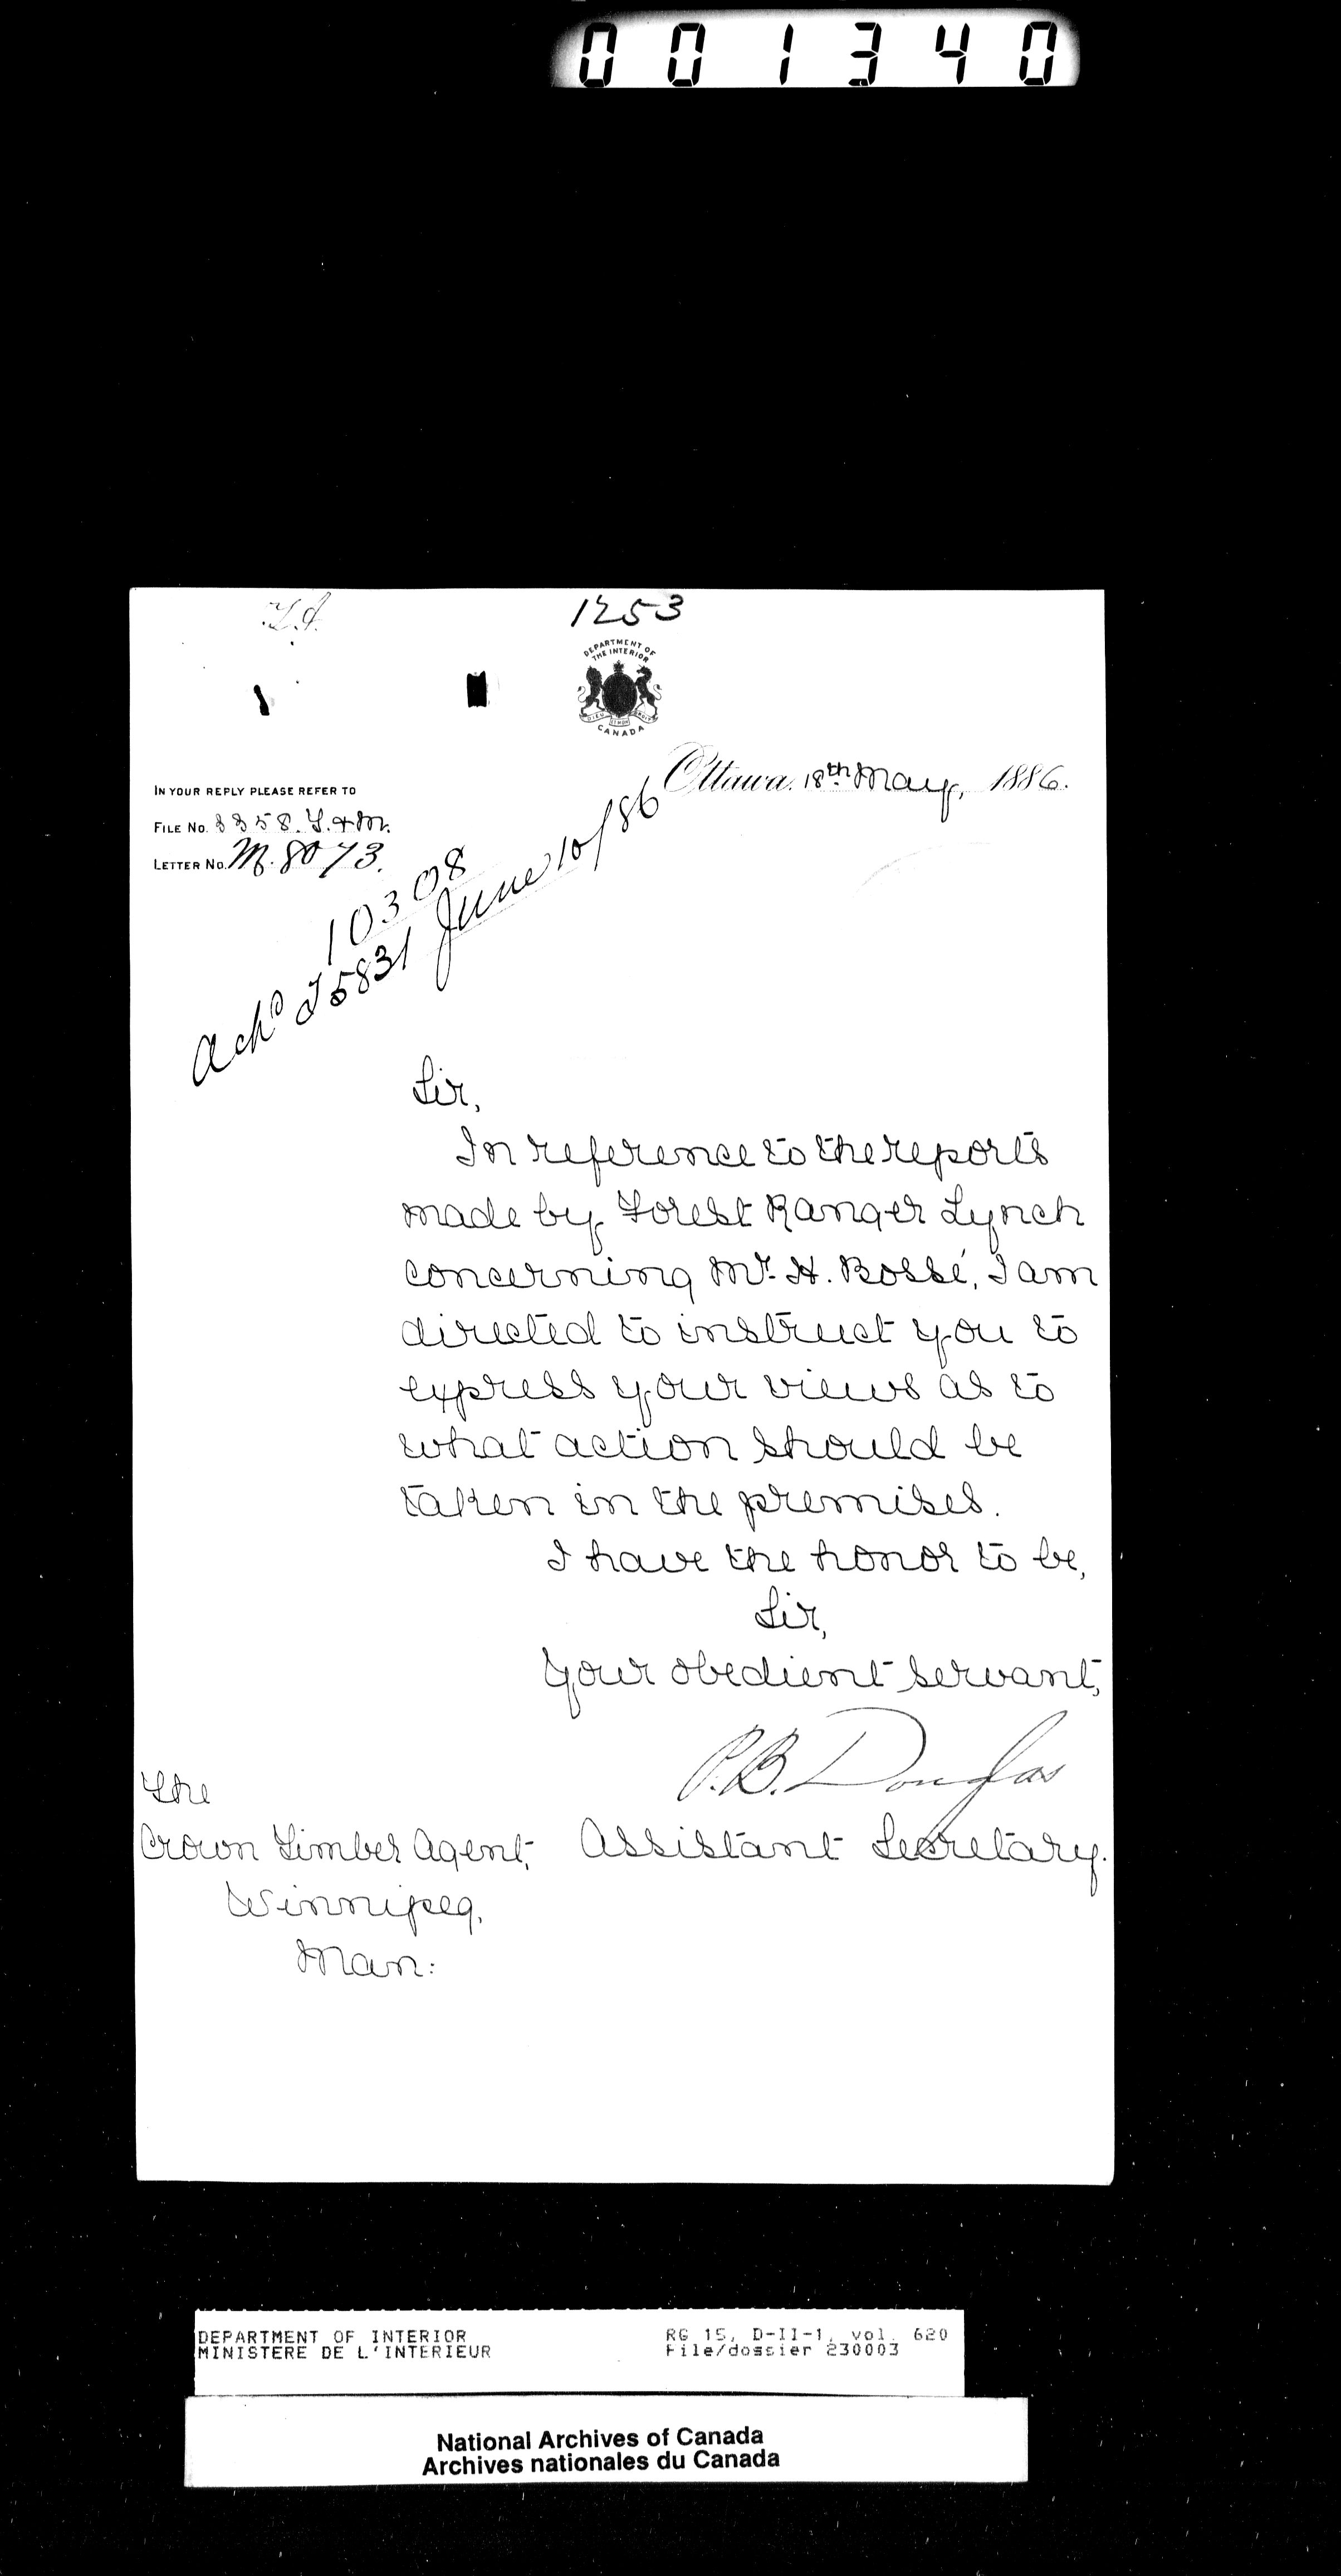 001340
1253
DEPARTMENT OF
THE INTERIOR
CANADA
Ottawa, 18th May, 1886.
IN YOUR REPLY PLEASE REFER TO
FILE No. 3358. T. & M.
LETTER No. M. 8073.
10308
Ackd T5831 June 10/86
Sir,
In reference to the reports
made by Forest Ranger Lynch
concerning Mr. H. Bossé, I am
directed to instruct you to
express your views as to
what action should be
taken in the premises.
I have the honor to be,
Sir,
Your obedient servant,
P.B. Douglas
Assistant Secretary.
The
Crown Timber Agent,
Winnipeg,
Man:
DEPARTMENT OF INTERIOR
MINISTERE DE L'INTERIEUR
RG 15, D-II-1, vol. 620
File/dossier 230003
National Archives of Canada
Archives nationales du Canada